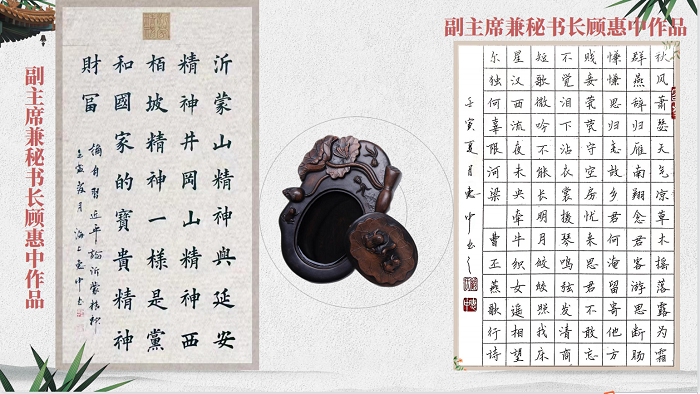 副主席兼秘书长顾惠中作品
沂蒙山精神與延安
精神井岡山精神西
栢坡精神一樣是黨
和國家的寶貴精神
財冨
摘自習近平論沂蒙精神
壬寅夏月海上惠中书
副主席兼秘书长顾惠中作品
秋风萧瑟天气凉草木摇落露为霜
群燕辞归雁南翔念君客游思断肠
慊慊思归恋故乡君何淹留寄他方
贱妾茕茕守空房忧来思君不敢忘
不觉泪下沾衣裳援琴鸣弦发清商
短歌微吟不能长明月皎皎照我床
星汉西流夜未央牵牛织女遥相望
尔独何辜限河梁 曹丕燕歌行诗
壬寅夏月惠中书